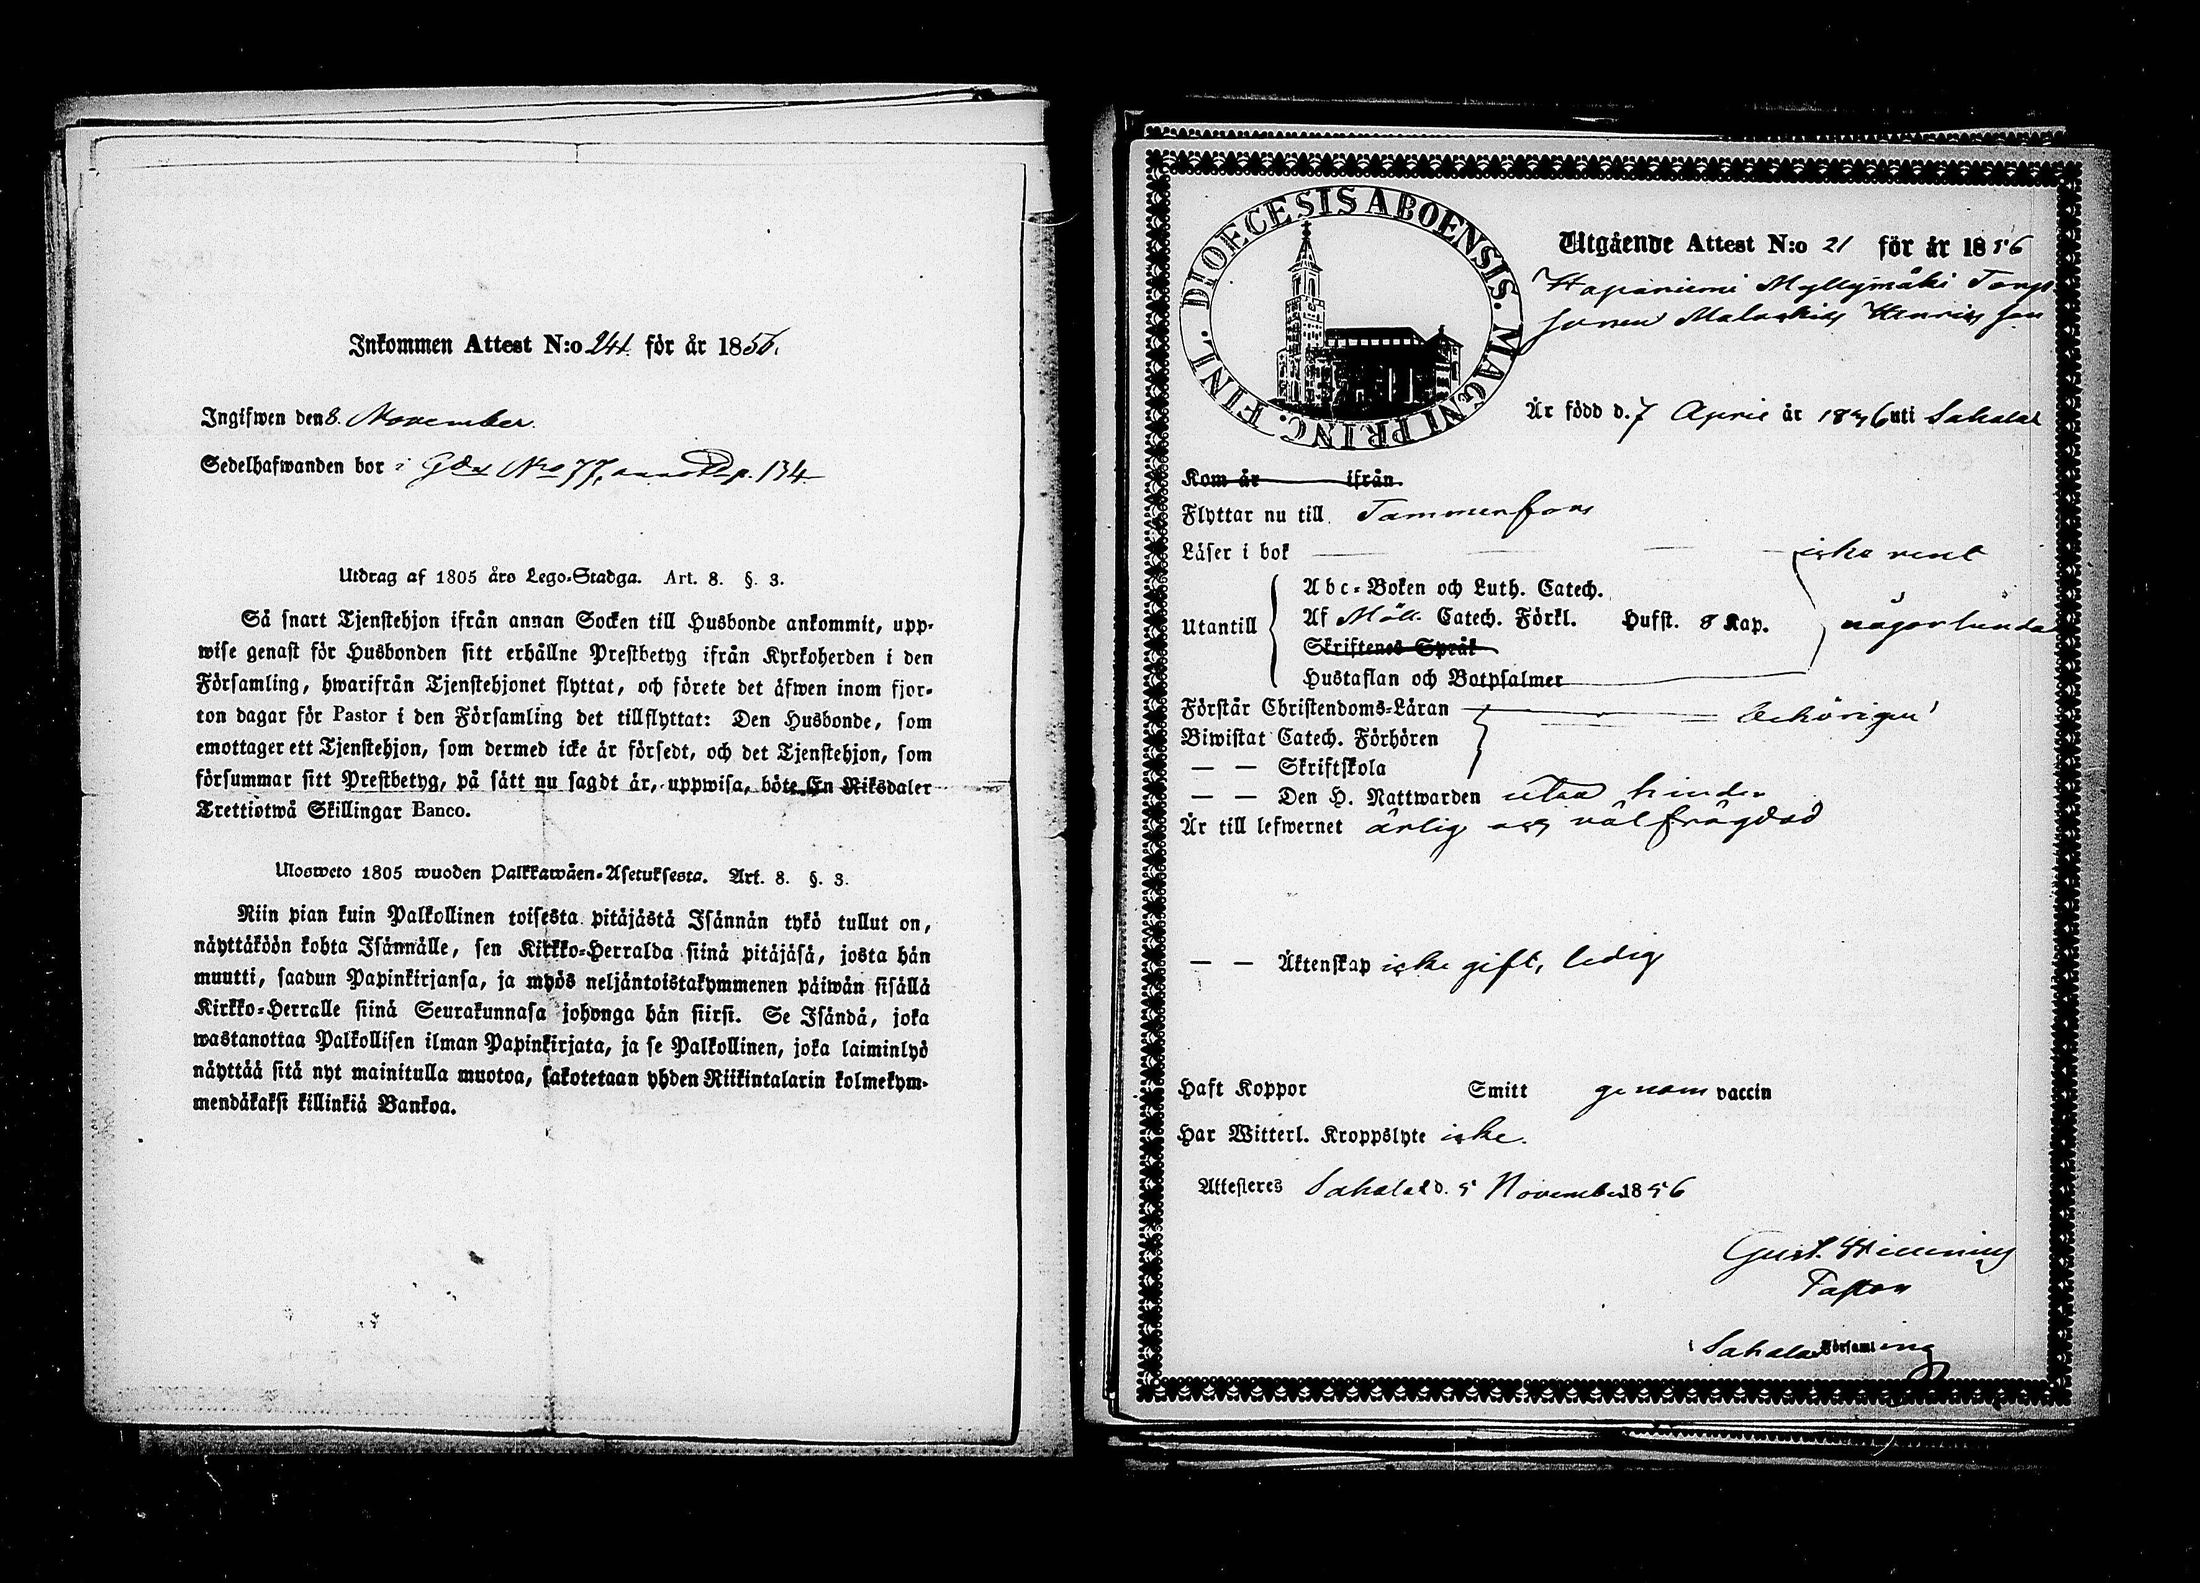 Inkommen Attest N:o 241. för år 1856.
Ingifwen den 8. November.
Sedelhafwanden bor i Gd N:o 77, p. 134
Utdrag af 1805 års Lego-Stadga. Art. 8. §. 3.
Så snart Tjenstehjon ifrån annan Socken till Husbonde ankommit, upp-
wise genast för Husbonden sitt erhållne Prestbetyg ifrån Kyrkoherden i den
Församling, hwarifrån Tjenstehjonet flyttat, och förete det äfwen inom fjor-
ton dagar för Pastor i den Församling det tillflyttat: Den Husbonde, som
emottager ett Tjenstehjon, som dermed icke är försedt, och det Tjenstehjon, som
försummar sitt Prestbetyg, på sätt nu sagdt är, uppwisa, böte En Riksdaler
Trettiotwå Skillingar Banco.
Ulosweto 1805 wuoden Palkkawäen-Asetuksesta. Art. 8. §. 3.
Niin pian kuin Palkollinen toisesta pitäjästä Isännän tykö tullut on,
näyttäköön kohta Isännälle, sen Kirkko-Herralda siinä pitäjäsä, josta hän
muutti, saadun Papinkirjansa, ja myös neljäntoistakymmenen päiwän sisällä
Kirkko-Herralle siinä Seurakunnasa johonga hän siirsi. Se Isändä, joka
wastanottaa Palkollisen ilman Papinkirjata, ja se Palkollinen, joka laiminlyö
näyttää sitä nyt mainitulla muotoa, sakotetaan yhden Riikintalarin kolmekym-
mendäkaksi killinkiä Bankoa.
DIOECESIS ABOENSIS. MAGNI PRINC. FINL.
Utgående Attest N:o 21 för år 1856
Haponiemi Myllymäki Torp
sonen Malachias Henricsson
Är född d. 7 April år 1836 uti Sahalax
Kom år ifrån
Flyttar nu till Tammerfors
Läser i bok icke rent
Abc-Boken och Luth. Catech.
Utantill Af Möll. Catech. Förkl. Hufst. 8 Kap. någorlunda
Skriftenes Språk
Hustaflan och Botpsalmer
Förstår Christendoms-Läran behörigen
Biwistat Catech. Förhören
— — Skriftskola
— — Den H. Nattwarden utan hinder
Är till lefwernet ärlig och välfrägdad
— — Äktenskap icke gift, ledig
Haft Koppor Smitt genom vaccin
Har Witterl. Kroppslyte icke.
Attesteres Sahalax d. 5 November 1856
Gust. Heurning
Pastor
i Sahalax Församling